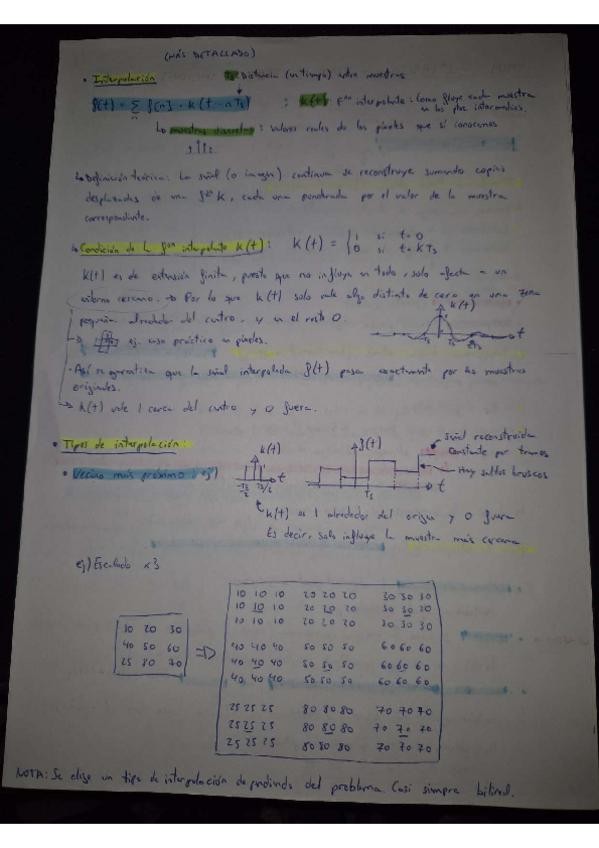 (MÁS DETALLADO)
• Interpolación Ts: Distancia (en tiempo) entre muestras
f(t) = Σ f[n] · k(t - nTs) ; k(t): Fón interpolante: Como fluye cada muestra
n en los ptos intermedios.
↳ muestras discretas: valores reales de los píxeles que sí conocemos
↳ Definición teórica: La señal (o imagen) continua se reconstruye sumando copias
desplazadas de una fón k, cada una ponderada por el valor de la muestra
correspondiente.
↳ Condición de la fón interpolante k(t): k(t) = { 1 si t=0
0 si t=kTs
k(t) es de extensión finita, puesto que no influye en todo, solo afecta a un
entorno cercano. → Por lo que k(t) solo vale algo distinto de cero en una zona
pequeña alrededor del centro, y en el resto 0.
k(t)
Ts 2Ts t
→ ej. caso práctico en píxeles.
· Así se garantiza que la señal interpolada f(t) pasa exactamente por las muestras
originales.
→ k(t) vale 1 cerca del centro y 0 fuera.
• Tipos de interpolación:
• Vecino más próximo: ej)
k(t)
-Ts/2 Ts/2 t
f(t)
Ts t
señal reconstruida
constante por tramos
Hay saltos bruscos
k(t) es 1 alrededor del origen y 0 fuera
Es decir, solo influye la muestra más cercana
ej) Escalado x3
10 20 30
40 50 60
25 80 70
⇒
10 10 10 20 20 20 30 30 30
10 10 10 20 20 20 30 30 30
10 10 10 20 20 20 30 30 30
40 40 40 50 50 50 60 60 60
40 40 40 50 50 50 60 60 60
40 40 40 50 50 50 60 60 60
25 25 25 80 80 80 70 70 70
25 25 25 80 80 80 70 70 70
25 25 25 80 80 80 70 70 70
NOTA: Se elige un tipo de interpolación dependiendo del problema. Casi siempre bilineal.